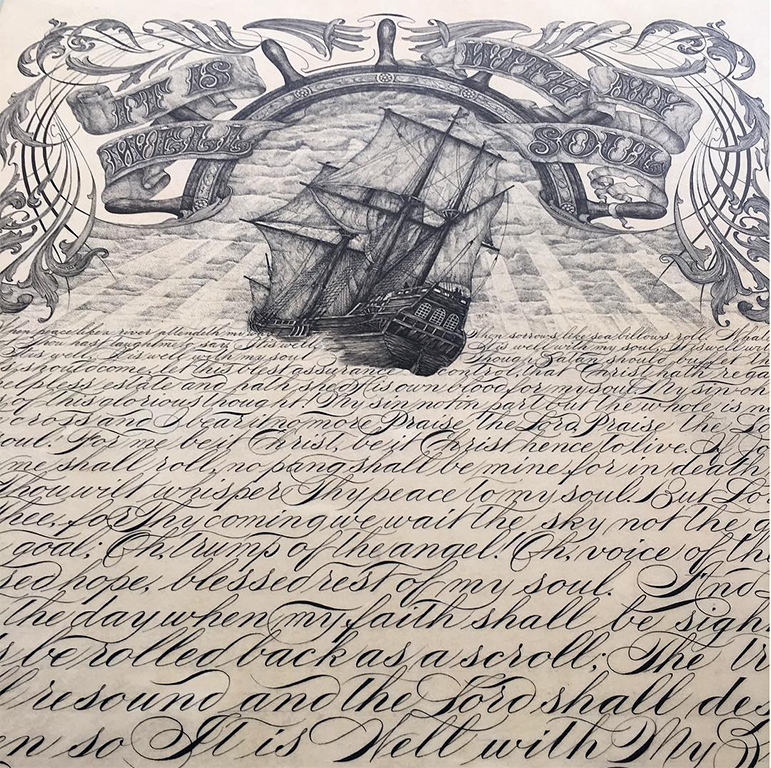 IT IS
WELL
WITH MY
SOUL
When peace like a river attendeth my
When sorrows like sea billows roll. Whate
Thou hast taught me to say It is well
It is well with my soul. It is well with
It is well, It is well with my soul
Though Satan should buffet
should come, let this blest assurance control, that Christ hath rega
helpless estate and hath shed His own blood for my soul. My sin oh
of this glorious thought! My sin not in part but the whole is na
cross and I bear it no more Praise the Lord, Praise the Lo
soul! For me be it Christ, be it Christ hence to live. If Jo
me shall roll, no pang shall be mine, for in death
Thou wilt whisper Thy peace to my soul. But Lo
thee, for Thy coming we wait the sky not the g
goal; Oh, trump of the angel! Oh, voice of the
sed hope, blessed rest of my soul. And L
the day when my faith shall be sigh
s be rolled back as a scroll; The tr
l resound and the Lord shall des
en so It is Well with My S